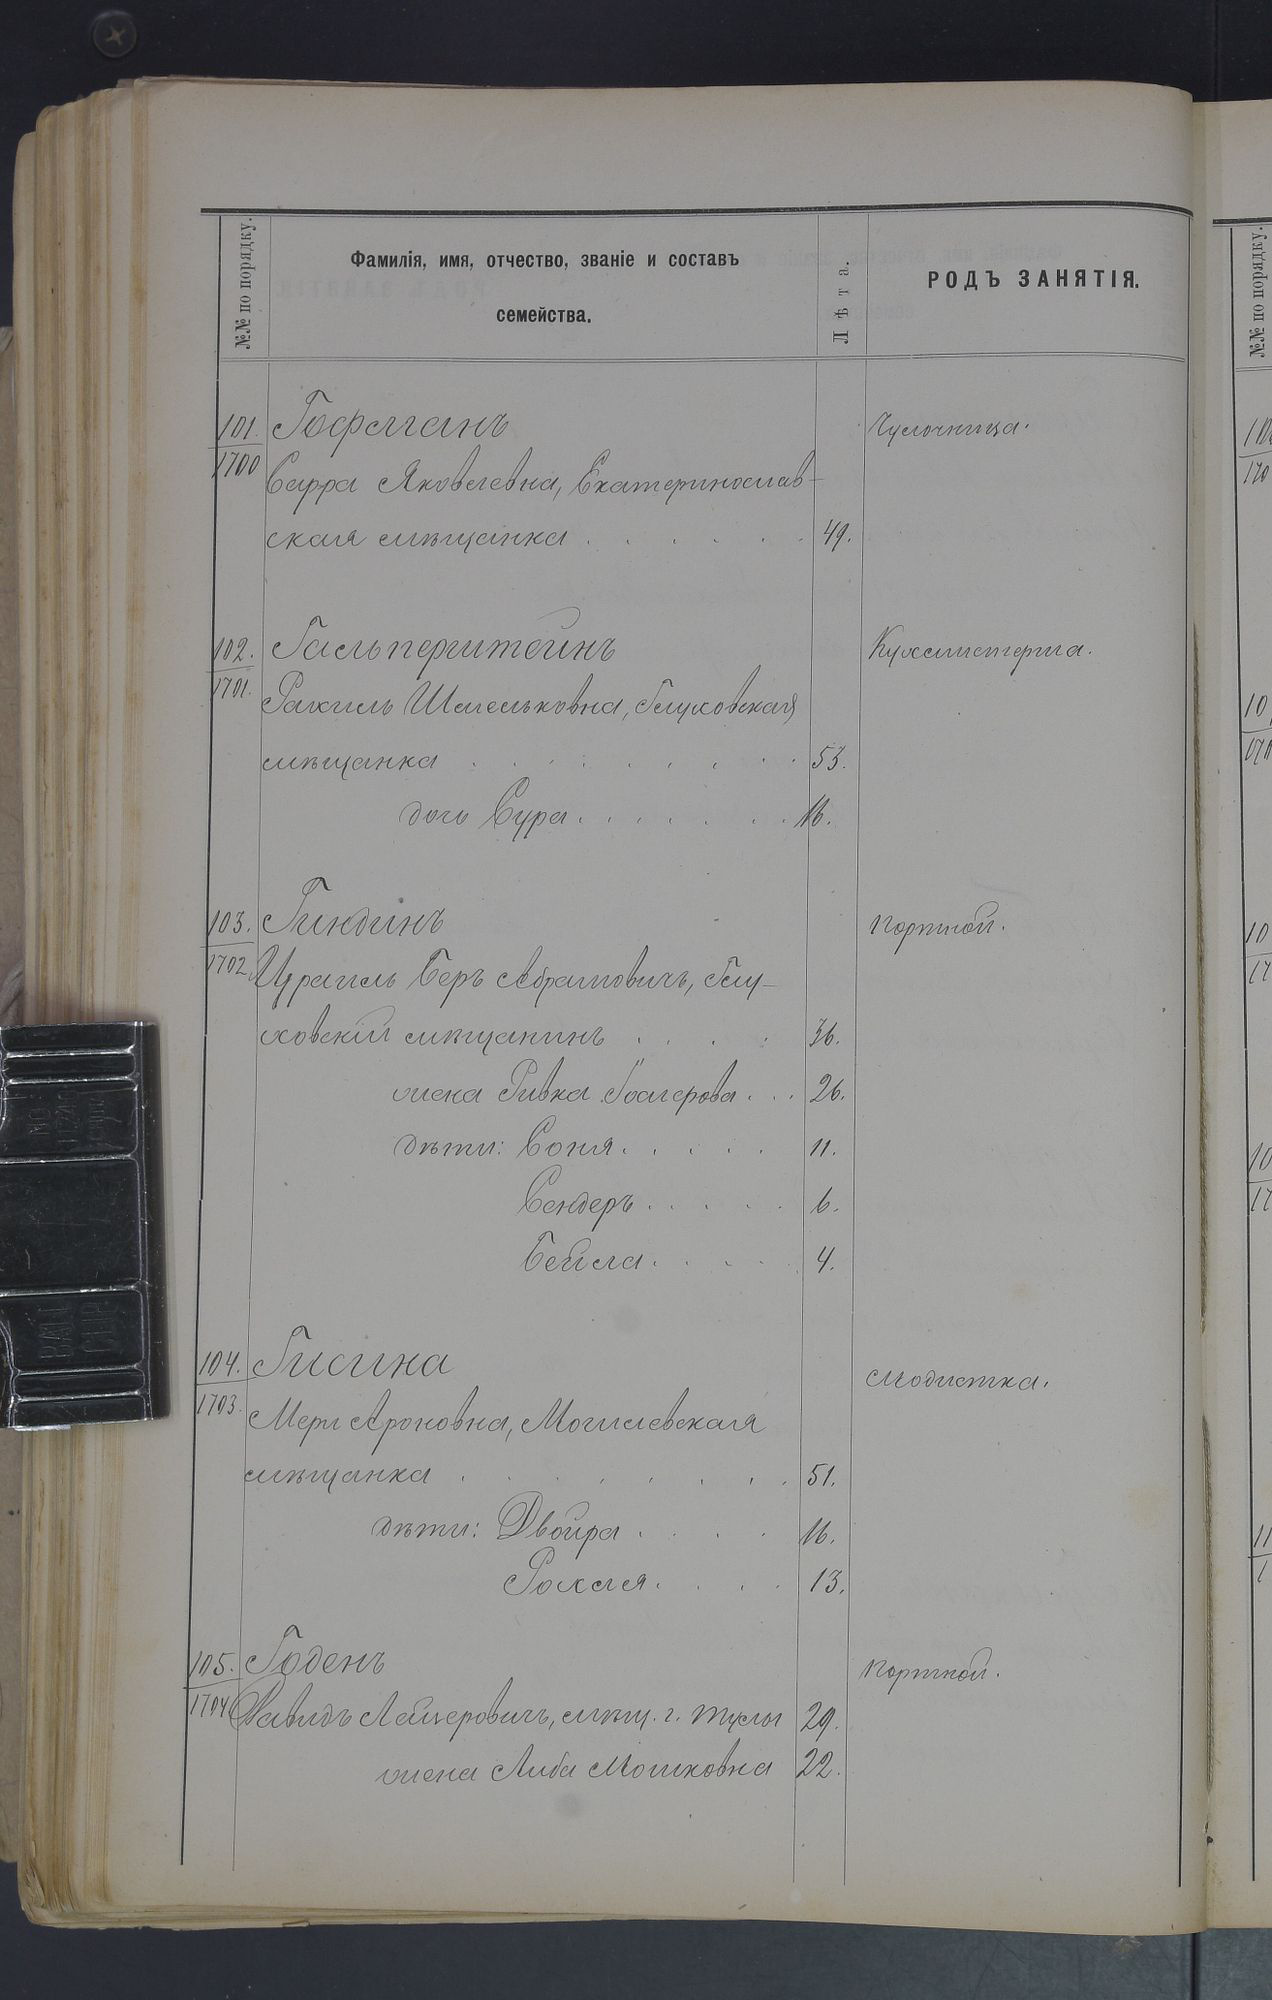 №№ по порядку.
Фамилія, имя, отчество, званіе и составъ
семейства.
Лѣта.
РОДЪ ЗАНЯТІЯ.
№№ по порядку.
101. Гофманъ Чулочница.
1700
Сарра Яковлевна, Екатеринослав-
ская мѣщанка . . . . . . 49.
102. Гальперштейнъ Кухмистерша.
1701.
Рахиль Шмельковна, Глуховская
мѣщанка . . . . . . . . 53.
дочь Сура . . . . . . . 16.
103. Гиндинъ портной.
1702
Израиль Беръ Абрамовичъ, Глу-
ховскій мѣщанинъ . . . . 36.
жена Ривка . . . 26.
дѣти: Соня . . . . . 11.
Сендеръ . . . . . 6.
Бейла . . . . . 4.
104. Гисина модистка.
1703.
Мери Ароновна, Могилевская
мѣщанка . . . . . . . . 51.
дѣти: Двойра . . . . 16.
Рахля . . . . 13.
105. Годенъ портной.
1704
Давидъ Лейзеровичъ, мѣщ. г. Тулы 29.
жена Либа Мошковна 22.